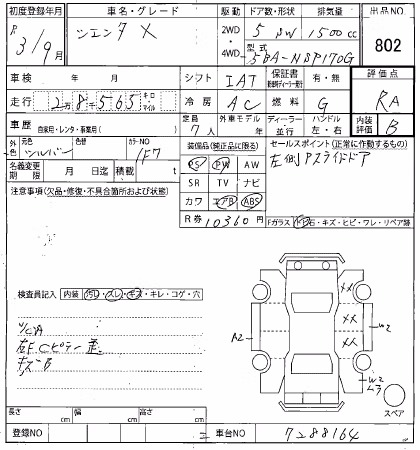 初度登録年月 車名・グレード 駆動 ドア数・形状 排気量 出品NO
R 3/9月 シエンタ X 2WD 4WD 5 BW 1500cc 802
型式 5BA-NSP170G
車検 年 月 シフト IAT 保証書 有・無 評価点
走行 2万8千565 キロ マイル 冷房 AC 燃料 G RA
車歴 自家用・レンタ・事業用( ) 定員 7人 外車モデル 年 ディーラー 並行 ハンドル 左・右 内装評価 B
外色 元色 シルバー 色替 カラーNO 1F7 装備品(純正品に限る) セールスポイント(正常に作動するもの)
名義変更期限 月 日迄 積載 t PS PW AW 左側Pスライドドア
注意事項(欠品・修復・不具合箇所および状態) SR TV ナビ
カワ エアB ABS
R券 10360円 Fガラス 飛石・キズ・ヒビ・ワレ・リペア跡
検査員記入 内装 汚レ・スレ・キズ・キレ・コゲ・穴
XX
A2 XX W2
右F Cピラー XX
キズB W2
スペア
長さ cm 幅 cm 高さ cm
登録NO 車台NO 7288164